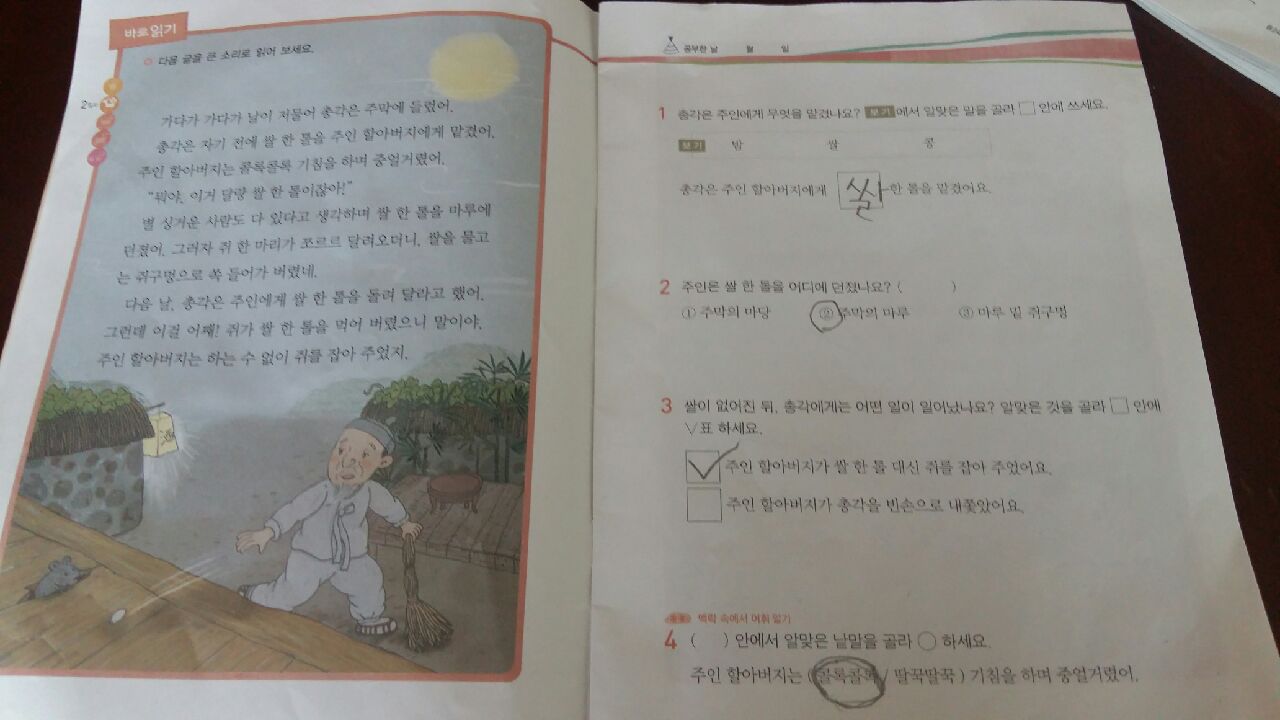 바로 읽기
다음 글을 큰 소리로 읽어 보세요.
가다가 가다가 날이 저물어 총각은 주막에 들렀어.
총각은 자기 전에 쌀 한 톨을 주인 할아버지에게 맡겼어.
주인 할아버지는 콜록콜록 기침을 하며 중얼거렸어.
"뭐야, 이거 달랑 쌀 한 톨이잖아!"
별 싱거운 사람도 다 있다고 생각하며 쌀 한 톨을 마루에
던졌어. 그러자 쥐 한 마리가 쪼르르 달려오더니, 쌀을 물고
는 쥐구멍으로 쏙 들어가 버렸네.
다음 날, 총각은 주인에게 쌀 한 톨을 돌려 달라고 했어.
그런데 이걸 어째! 쥐가 쌀 한 톨을 먹어 버렸으니 말이야.
주인 할아버지는 하는 수 없이 쥐를 잡아 주었지.
공부한 날 월 일
1 총각은 주인에게 무엇을 맡겼나요? 보기 에서 알맞은 말을 골라 □ 안에 쓰세요.
보기 밤 쌀 콩
총각은 주인 할아버지에게 쌀 한 톨을 맡겼어요.
2 주인은 쌀 한 톨을 어디에 던졌나요? ( )
① 주막의 마당 ② 주막의 마루 ③ 마루 밑 쥐구멍
3 쌀이 없어진 뒤, 총각에게는 어떤 일이 일어났나요? 알맞은 것을 골라 □ 안에
∨표 하세요.
주인 할아버지가 쌀 한 톨 대신 쥐를 잡아 주었어요.
주인 할아버지가 총각을 빈손으로 내쫓았어요.
맥락 속에서 어휘 읽기
4 ( ) 안에서 알맞은 낱말을 골라 ○ 하세요.
주인 할아버지는 ( 콜록콜록 / 딸꾹딸꾹 ) 기침을 하며 중얼거렸어.